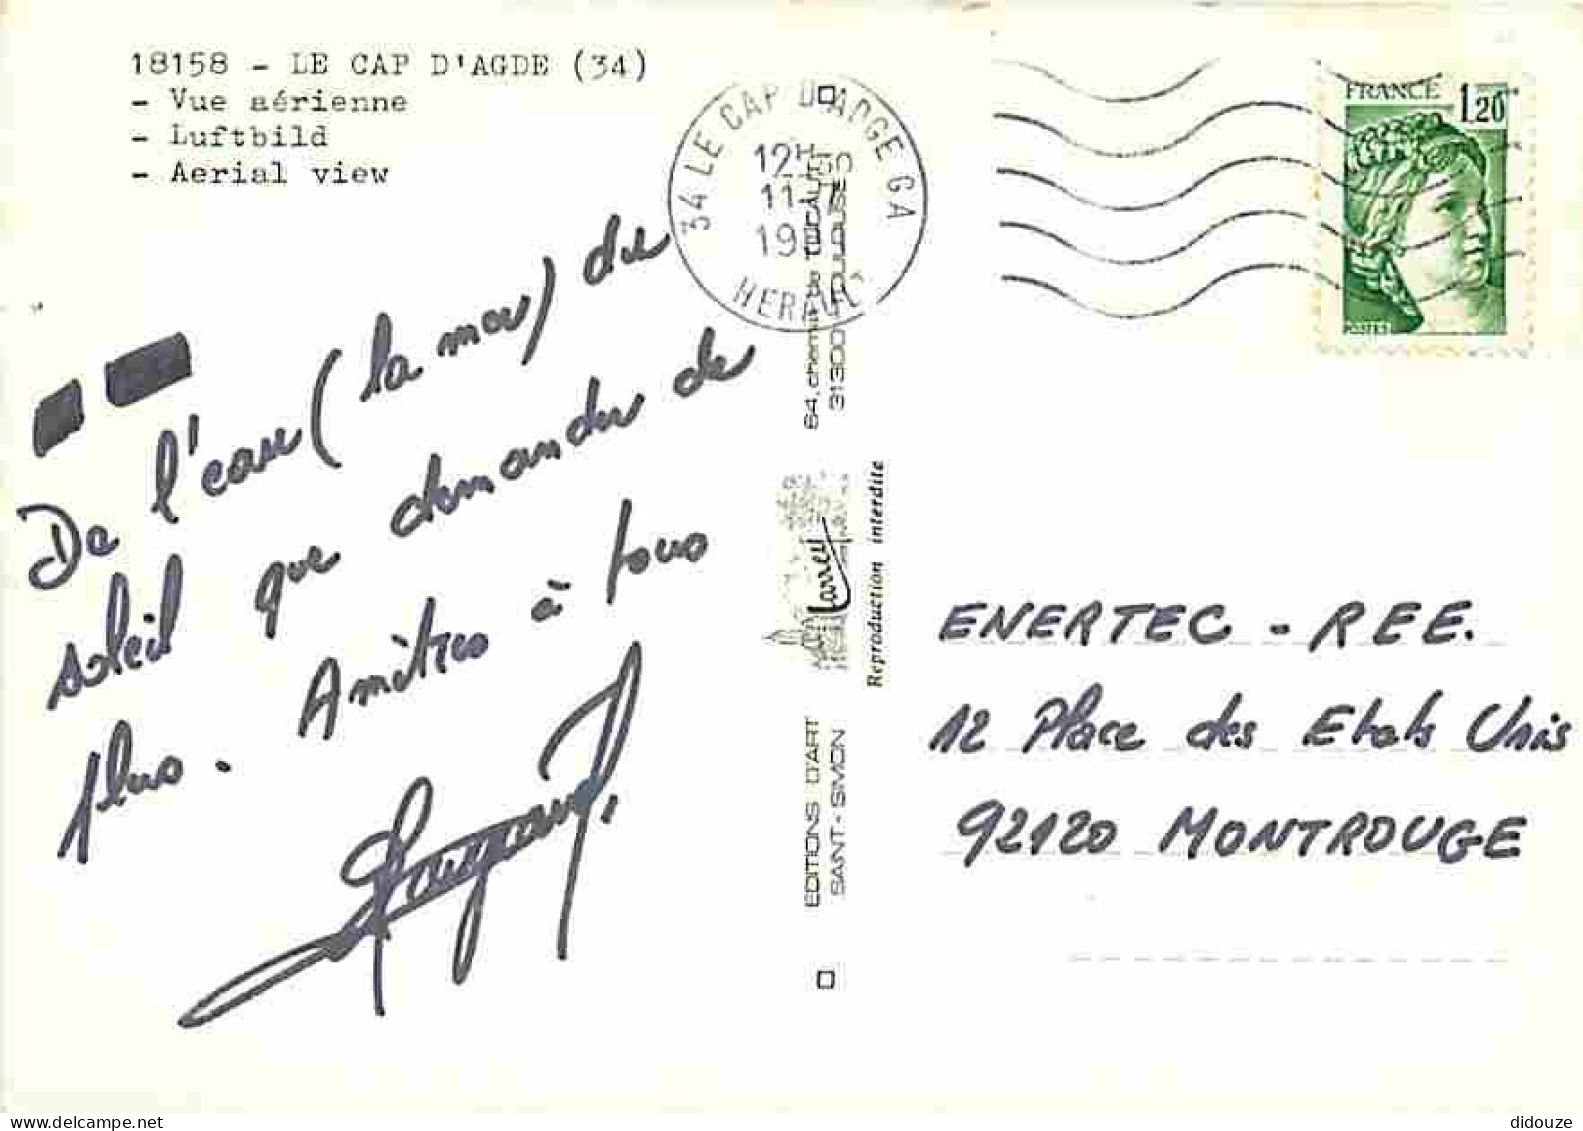 18158 - LE CAP D'AGDE (34)
- Vue aérienne
- Luftbild
- Aerial view
34 LE CAP D'AGDE GA
12H
11-7
19
HERAULT
FRANCE 1,20
POSTES
De l'eau (la mer) du
soleil que demander de
plus. Amitiés à tous
EDITIONS D'ART
SAINT-SIMON
Larrey
64, chemin de
31300 TOULOUSE
Reproduction interdite
ENERTEC - REE.
12 Place des Etats Unis
92120 MONTROUGE
didouze